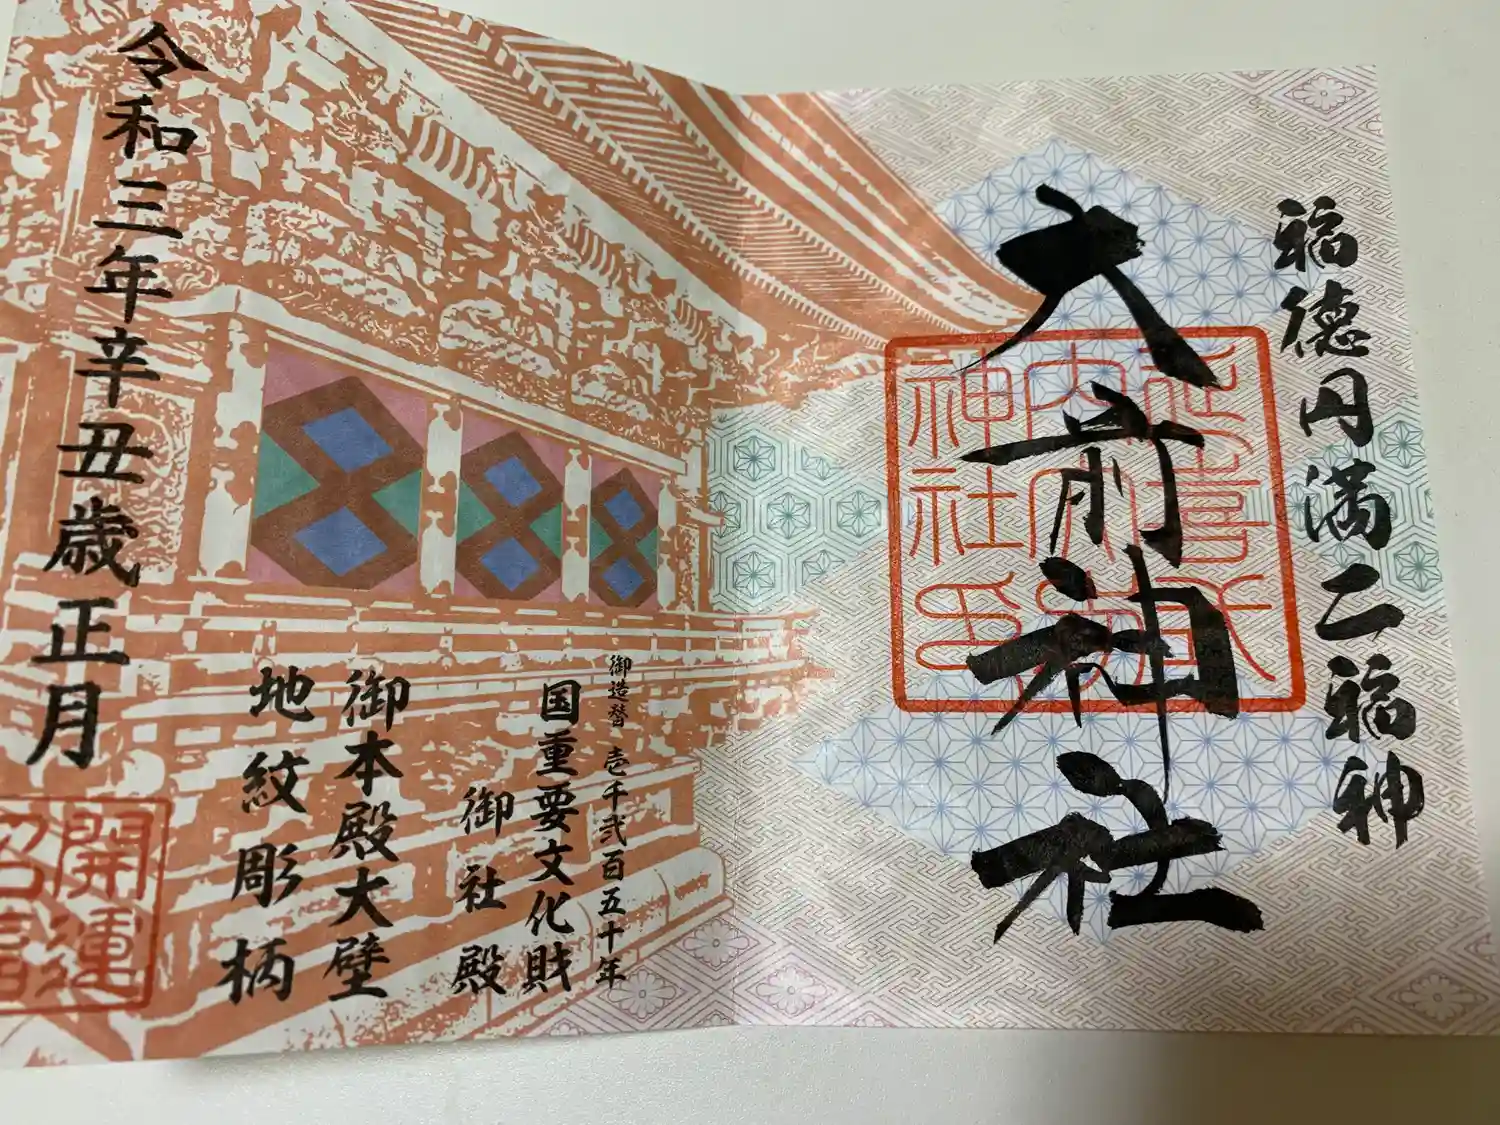 福徳円満二福神
大前神社
御造替 壱千弐百五十年
国重要文化財
御社殿
御本殿大壁
地紋彫柄
令和三年辛丑歳正月
開運